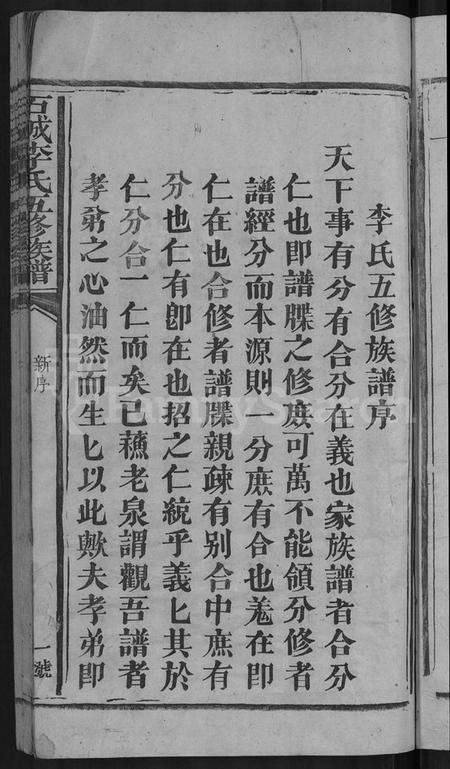 李氏五修族譜序
天下事有分有合分在義也家族譜者合分
仁也即譜牒之修庶可萬不能領分修者
譜經分而本源則一分庶有合也羗在即
仁在也合修者譜牒親疎有别合中庶有
分也仁有即在也招之仁統乎義匕其於
仁分合一仁而矣已蘓老泉謂觀吾譜者
孝弟之心油然而生匕以此歟夫孝弟即
石城李氏五修族譜
新序
一號
FamilySearch